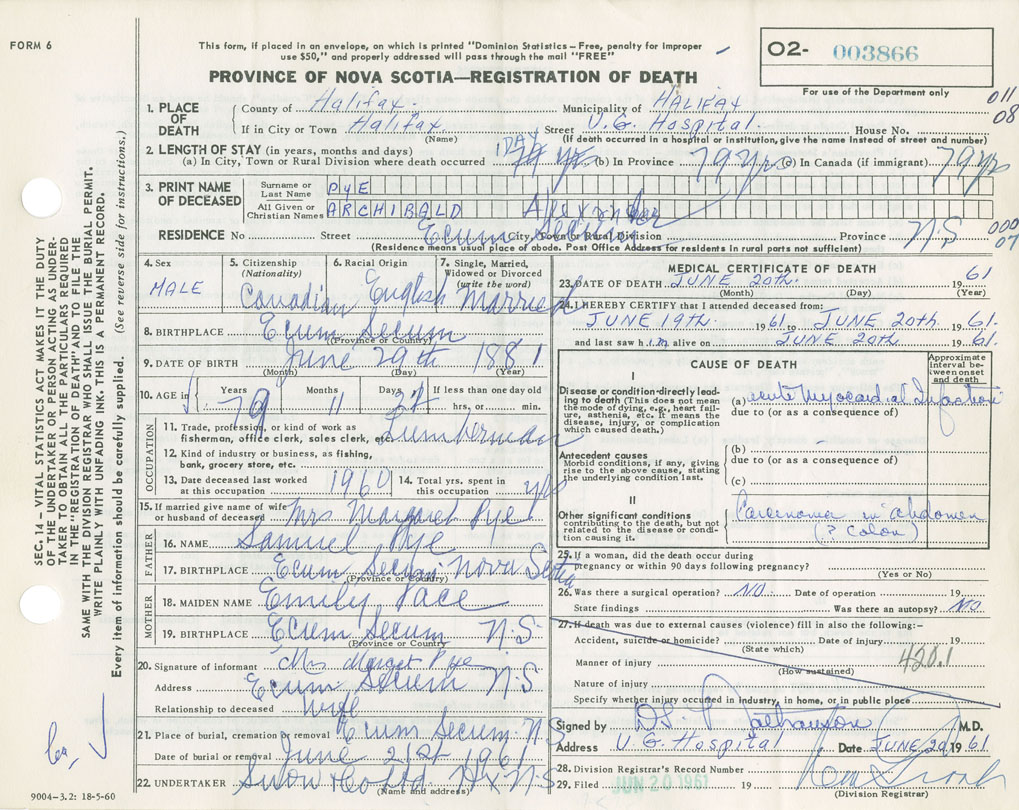 FORM 6
This form, if placed in an envelope, on which is printed "Dominion Statistics – Free, penalty for improper
use $50," and properly addressed will pass through the mail "FREE"
PROVINCE OF NOVA SCOTIA—REGISTRATION OF DEATH
O2- 003866
For use of the Department only
011
08
1. PLACE OF DEATH
County of Halifax. Municipality of HALIFAX
If in City or Town Halifax Street V.G. Hospital. House No.
(Name) (If death occurred in a hospital or institution, give the name instead of street and number)
2. LENGTH OF STAY (in years, months and days)
(a) In City, Town or Rural Division where death occurred 1 DAY (b) In Province 79 yrs (c) In Canada (if immigrant) 79 yrs
3. PRINT NAME OF DECEASED
Surname or Last Name PYE
All Given or Christian Names ARCHIBALD Alexander
RESIDENCE No. Street Ecum Secum City, Town or Rural Division Province N.S
(Residence means usual place of abode. Post Office Address for residents in rural parts not sufficient)
000
07
4. Sex
MALE
5. Citizenship
(Nationality)
Canadian
6. Racial Origin
English
7. Single, Married, Widowed or Divorced
(write the word)
Married
8. BIRTHPLACE Ecum Secum
(Province or Country)
9. DATE OF BIRTH June 29th 1881
(Month) (Day) (Year)
10. AGE in Years Months Days If less than one day old
79 11 hrs. or min.
OCCUPATION
11. Trade, profession, or kind of work as
fisherman, office clerk, sales clerk, etc. Lumberman
12. Kind of industry or business, as fishing,
bank, grocery store, etc.
13. Date deceased last worked
at this occupation 1960
14. Total yrs. spent in
this occupation
15. If married give name of wife
or husband of deceased Mrs Margaret Pye
FATHER
16. NAME Samuel Pye
17. BIRTHPLACE Ecum Secum Nova Scotia
(Province or Country)
MOTHER
18. MAIDEN NAME Emily Pace
19. BIRTHPLACE Ecum Secum N.S.
(Province or Country)
20. Signature of informant Mrs Margaret Pye
Address Ecum Secum N.S
Relationship to deceased Wife
21. Place of burial, cremation or removal Ecum Secum. N.
Date of burial or removal June 21st 1961
22. UNDERTAKER Snow & Co Ltd Hx N.S
(Name and address)
MEDICAL CERTIFICATE OF DEATH
23. DATE OF DEATH JUNE 20th. 1961
(Month) (Day) (Year)
24. I HEREBY CERTIFY that I attended deceased from:
JUNE 19th. 1961 to JUNE 20th. 1961.
and last saw him alive on JUNE 20th. 1961.
CAUSE OF DEATH
Approximate interval between onset and death
I
Disease or condition directly leading to death (This does not mean
the mode of dying, e.g., heart failure, asthenia, etc. It means the
disease, injury, or complication
which caused death.)
(a) acute Myocardial Infarction
due to (or as a consequence of)
Antecedent causes
Morbid conditions, if any, giving
rise to the above cause, stating
the underlying condition last.
(b)
due to (or as a consequence of)
(c)
II
Other significant conditions
contributing to the death, but not
related to the disease or condition causing it.
Carcinoma in abdomen
(? Colon)
25. If a woman, did the death occur during
pregnancy or within 90 days following pregnancy?
(Yes or No)
26. Was there a surgical operation? NO. Date of operation 19
State findings Was there an autopsy? NO
27. If death was due to external causes (violence) fill in also the following:-
Accident, suicide or homicide? Date of injury 19
(State which)
Manner of injury 420.1
(How sustained)
Nature of injury
Specify whether injury occurred in industry, in home, or in public place
Signed by M.D.
Address V.G. Hospital Date JUNE 20, 1961.
28. Division Registrar's Record Number
29. Filed JUN 20 1961 19
(Division Registrar)
SEC. 14 – VITAL STATISTICS ACT MAKES IT THE DUTY
OF THE UNDERTAKER OR PERSON ACTING AS UNDERTAKER TO OBTAIN ALL THE PARTICULARS REQUIRED
IN THE "REGISTRATION OF DEATH" AND TO FILE THE
SAME WITH THE DIVISION REGISTRAR WHO SHALL ISSUE THE BURIAL PERMIT.
WRITE PLAINLY WITH UNFADING INK. THIS IS A PERMANENT RECORD.
Every item of information should be carefully supplied. (See reverse side for instructions.)
9004-3.2: 18-5-60